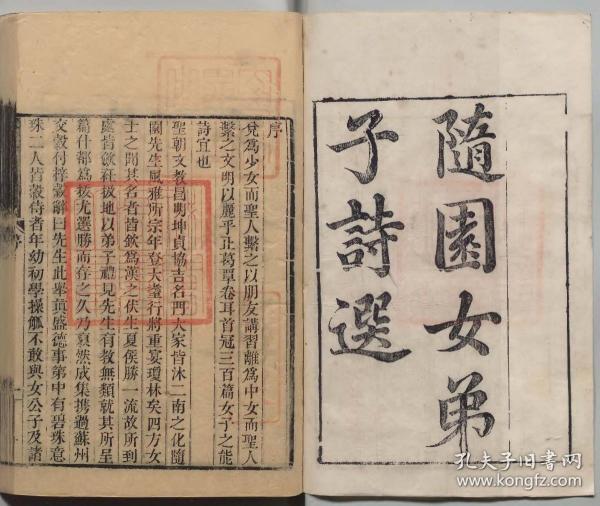 隨園女弟
子詩選
序
兌爲少女而聖人繫之以朋友講習離爲中女而聖人
繫之文明以麗乎正葛覃卷耳首冠三百篇女子之能
詩宜也
聖朝文教昌明坤貞協吉名門大家皆沐二南之化隨
園先生風雅所宗年登大耋行將重宴瓊林矣四方女
士之聞其名者皆欽爲漢之伏生夏侯勝一流故所到
處皆斂衽扱地以弟子禮見先生有教無類就其所呈
篇什都爲拔尤選勝而存之久乃裒然成集携過蘇州
交穀付梓穀辭曰先生此舉眞盛德事第中有碧珠意
珠二人皆穀侍者年幼初學操觚不敢與女公子及諸
孔夫子旧书网
www.kongfz.com